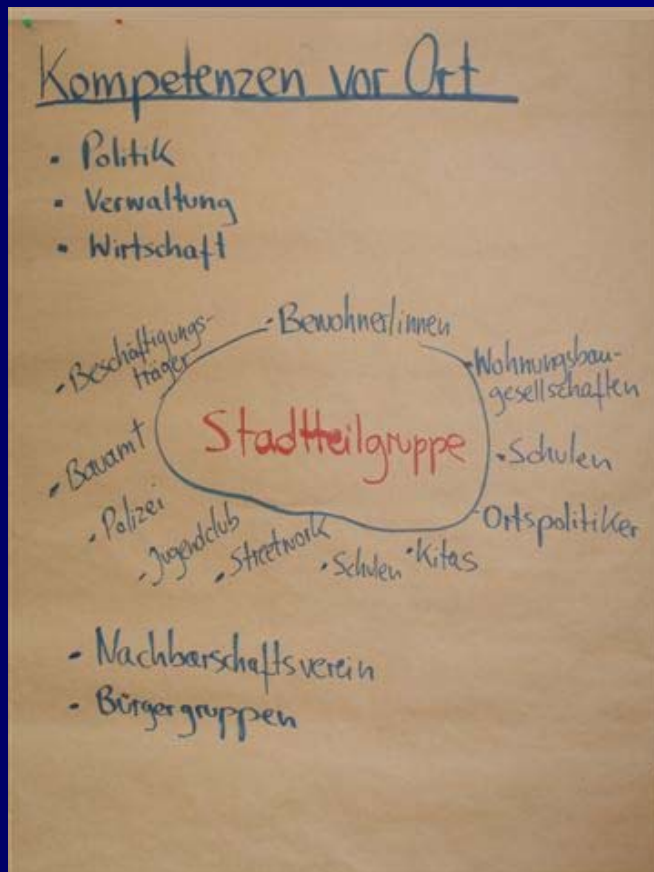 Kompetenzen vor Ort
• Politik
• Verwaltung
• Wirtschaft
• Bewohner/innen
• Wohnungsbau-
gesellschaften
• Schulen
- Ortspolitiker
• Kitas
• Schulen
• Streetwork
• Jugendclub
• Polizei
• Bauamt
• Beschäftigungs-
träger
Stadtteilgruppe
• Nachbarschaftsverein
• Bürgergruppen